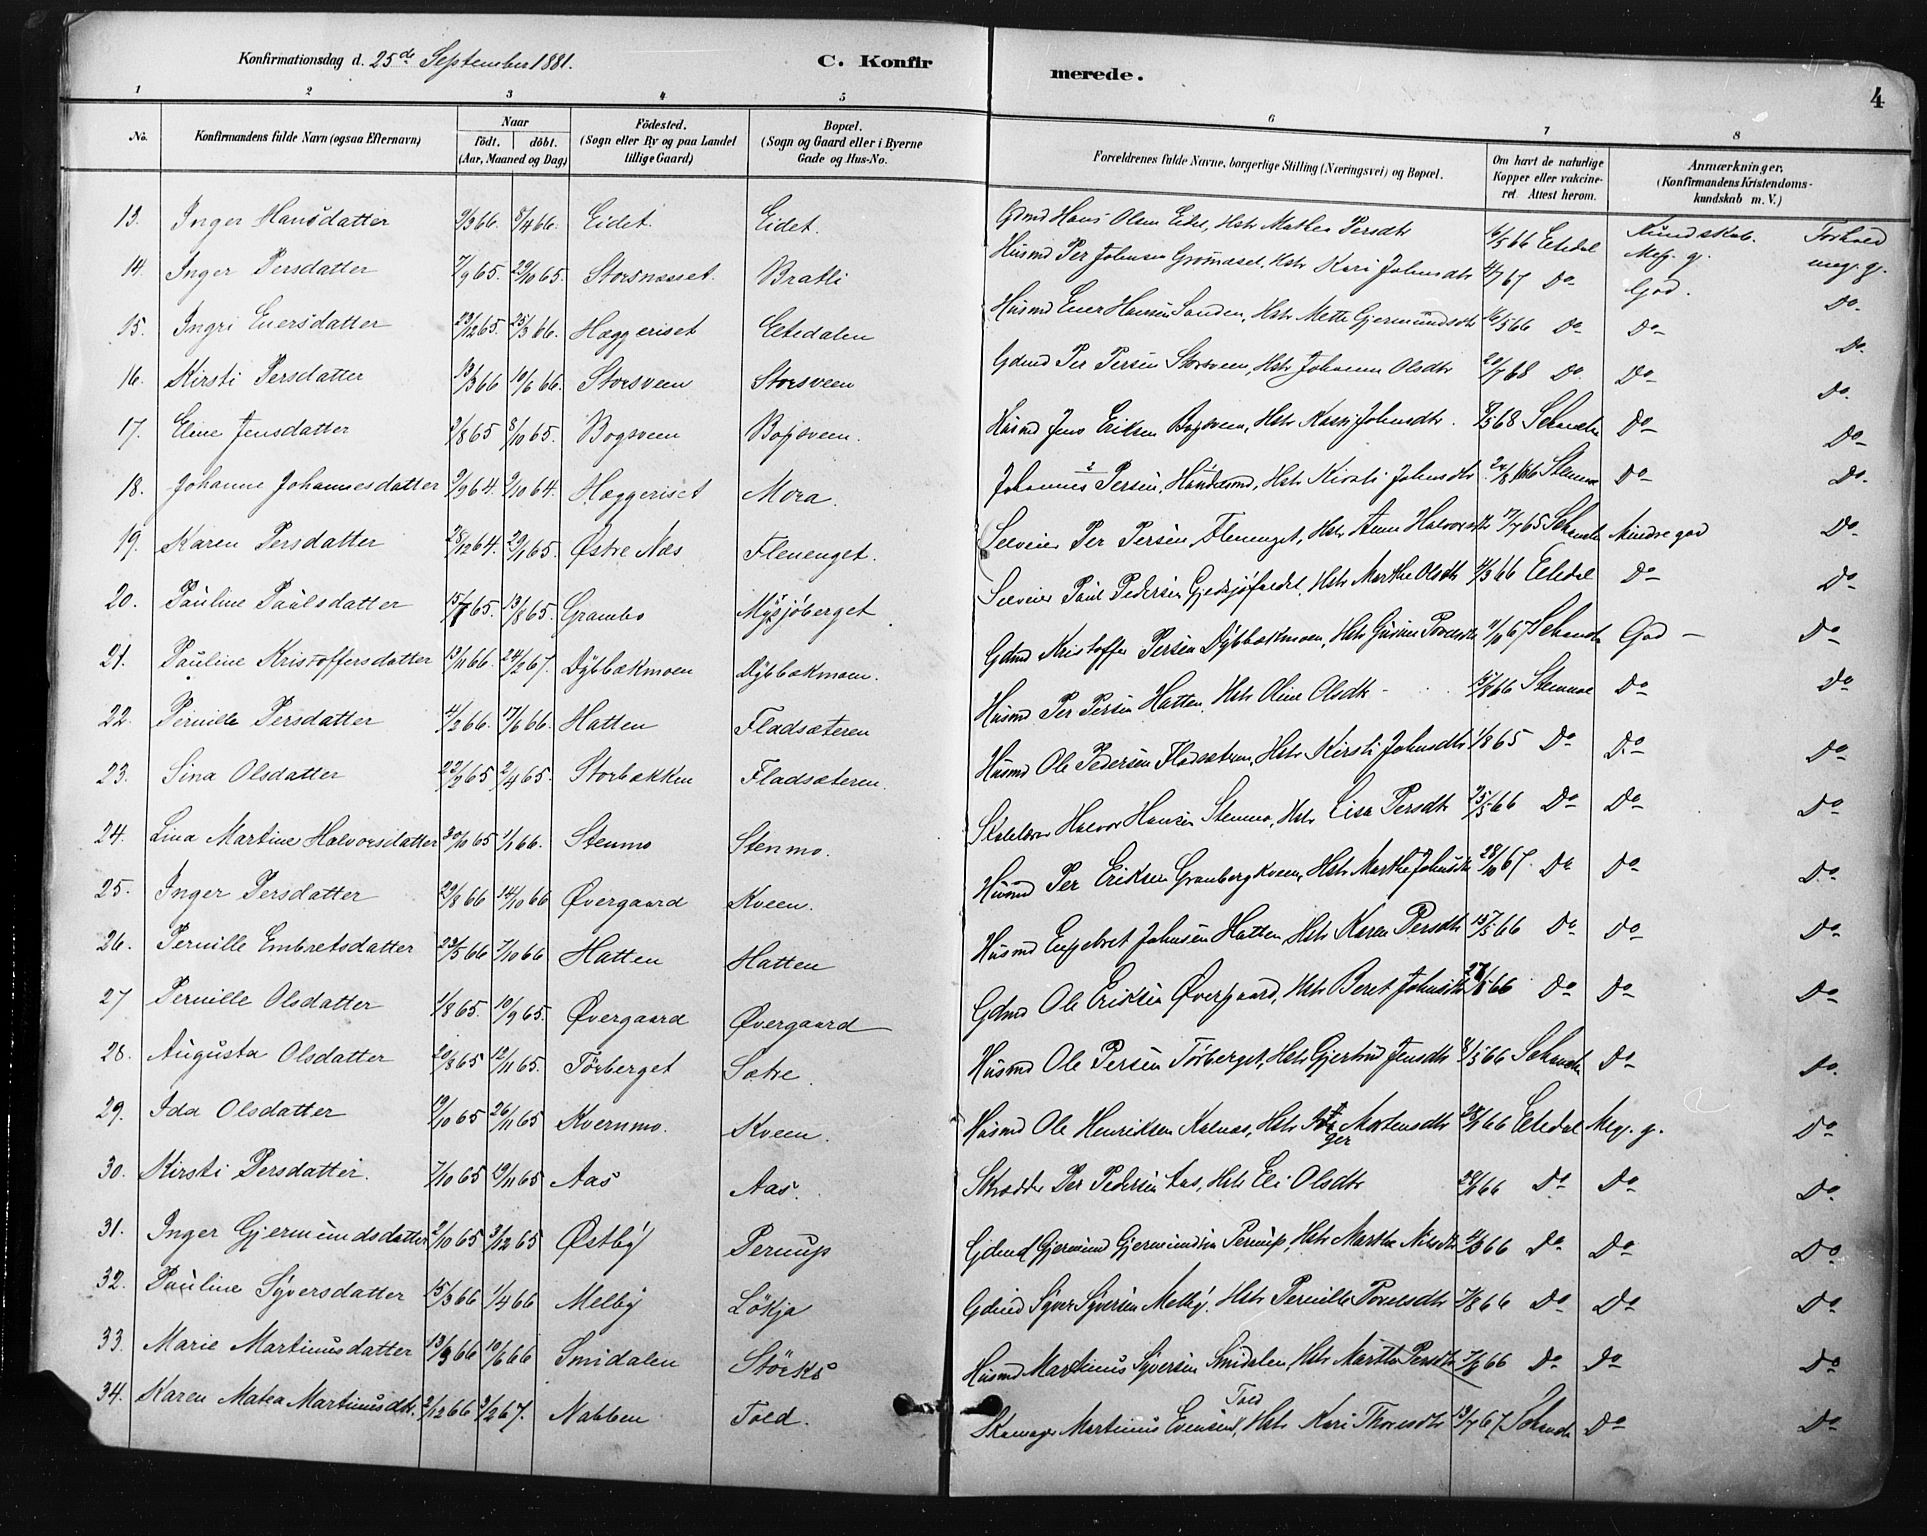 Konfirmationsdag d. 25de September 1881.
C. Konfirmerede.
4
1 2 3 4 5 6 7 8
No. Konfirmandens fulde Navn (ogsaa Efternavn) Naar født. døbt. (Aar, Maaned og Dag) Fødested. (Sogn eller By og paa Landet tillige Gaard) Bopæl. (Sogn og Gaard eller i Byerne Gade og Hus-No. Forældrenes fulde Navne, borgerlige Stilling (Næringsvei) og Bopæl. Om havt de naturlige Kopper eller vakcineret Attest herom. Anmærkninger, (Konfirmandens Kristendomskundskab m. V.)
Kundskab. Forhold
13. Inger Hansdatter 9/3 66. 8/4 66. Eidet. Eidet. Gdmd Hans Olsen Eidet, Hstr Mathea Persdtr 16/5 66 Eltdal Meg. g. meg. g.
14. Inger Persdatter 7/9 65. 29/10 65. Storsnæsset. Bratli Husmd Per Johnsen Grønnæset, Hstr Kari Johnsdtr 4/7 67 Do God. Do
15. Ingri Enersdatter 23/12 65. 25/3 66. Hæggeriset Eltedalen Husmd Ener Hansen Sanden, Hstr Mette Gjermundsdtr 16/5 66 Do Do Do
16. Kirsti Persdatter 13/3 66 10/6 66. Storsveen Storsveen Gdmd Per Persen Storsveen, Hstr Johanne Olsdtr 20/7 68 Do Do Do
17. Eline Jensdatter 2/8 65 8/10 65. Bogsveen Bogsveen. Husmd Jens Eriksen Bogsveen, Hstr Kari Johnsdtr. 9/5 68 Do Do
18. Johanne Johannesdatter 9/9 64. 9/10 64. Hæggeriset Mora. Johannes Persen, Hstr Kirsti Johnsdtr Do Do
19. Karen Persdatter 28/12 64. 29/1 65. Østre Næs Flenenget. Selveier Per Persen Flenenget, Hstr Anne Halvorsdtr 17/7 65 Mindre god Do
20. Pauline Paulsdatter 15/7 65. 13/8 65. Grambo Mysjøberget. Selveier Paul Pedersen Hstr Marthe Olsdtr 3 66 Eltdal Do Do
21. Pauline Kristoffersdatter 13/11 66. 24/2 67. Dybbækmoen Dybbækmoen. Gdmd Kristoffer Persen Dybbækmoen, Hstr Povelsdtr 11/9 67 God Do
22. Pernille Persdatter 4/2 66. 17/6 66. Hatten Fladsæteren Husmd Per Persen Hatten, Hstr Oline Olsdtr 66 Stenmoe Do Do
23. Sina Olsdatter 22/2 65 2/4 65. Storbækken Fladsæteren. Husmd Ole Pedersen Fladsætren, Hstr Kirsti Johnsdtr 1/8 65 Do Do Do
24. Lina Martine Halvorsdatter 20/10 65 1/1 66. Stenmo Stenmo. Halvor Hansen Stenmo, Hstr Lisa Persdtr 25/5 66 Do Do Do
25. Inger Persdatter 29/8 66 14/10 66 Øvergaard Kveen. Husmd Per Eriksen Granbergkveen, Hstr Marthe Johnsdtr 28/10 67. Do Do Do
26. Pernille Embretsdatter 23/5 66 7/10 66 Hatten Hatten Husmd Engebret Johnsen Hatten, Hstr Karen Persdtr 66 Do Do Do
27 Pernille Olsdatter 1/8 65. 10/9 65. Øvergaard Øvergaard Gdmd Ole Eriksen Øvergaard, Hstr Beret Johnsdtr 66 Do Do Do
28. Augusta Olsdatter 20/8 65 12/11 65. Törberget Sætre. Husmd Ole Persen Törberget, Hstr Gjertrud Jensdtr 8/5 66 Do Do
29. Ida Olsdatter 19/10 65 26/11 65 Kvernmo. Kveen. Husmd Ole Henriksen Kalnæs, Hstr Inger Mortensdtr 66 Eltedal Meg. g. Do
30. Kirsti Persdatter. 7/10 65 19/11 65 Aas Aas. Skrædder Per Pedersen Aas, Hstr Eli Olsdtr 66 Do Do Do
31. Inger Gjermundsdatter 2/10 65 3/12 65 Østby Pernup Gdmd Gjermund Gjermundsen Pernup, Hstr Marthe Nilsdtr 66 Do Do Do
32. Pauline Syversdatter 15/3 66 1/4 66 Melby Lökja Gdmd Syver Syversen Melby, Hstr Pernille Povelsdtr 7/8 66 Do Do Do
33. Marie Martinusdatter 13/3 66 10/6 66 Smidalen Störks Husmd Martinus Syversen Smidalen, Hstr Martha Persdtr 66 Do Do Do
34. Karen Matea Martinusdtr. 2/12 66 2/2 67. Nabben Toed. Skomager Martinus Evensen Toed, Hstr Kari Thoresdtr 13/7 67 Do Do